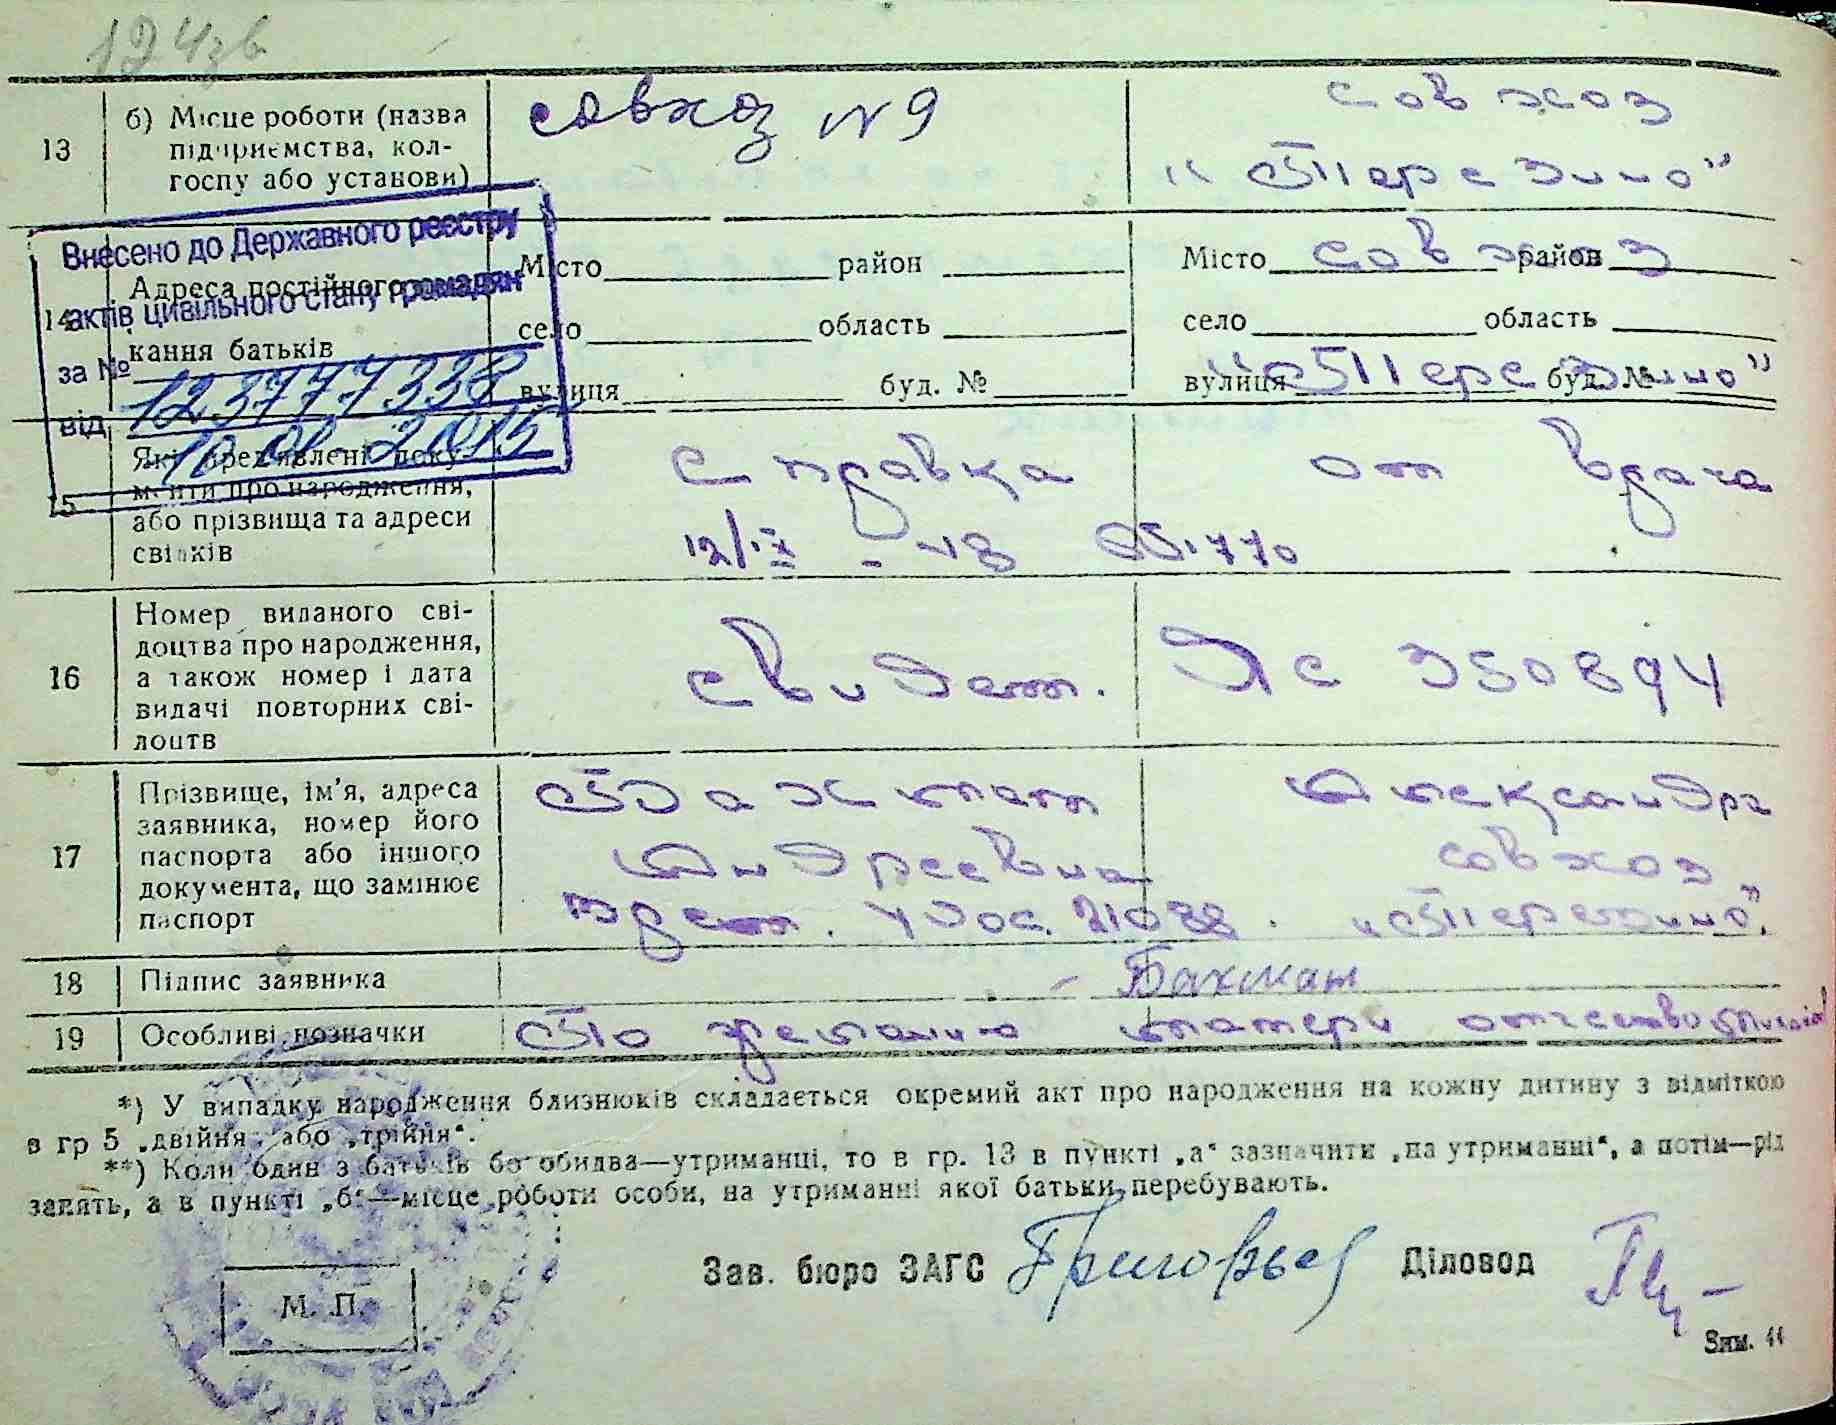 124зв
13
б) Місце роботи (назва підприємства, колгоспу або установи)
совхоз N 9
совхоз
"Пересдино"
Внесено до Державного реєстру
актів цивільного стану громадян
за № 123777338
від 2015
14
Адреса постійного
кання батьків
Місто район
село область
вулиця буд. №
Місто совхоз район
село область
вулиця буд. №
15
Які пред'явлені документи про народження, або прізвища та адреси свідків
справка от врача
12/IX - 48 770
16
Номер виданого свідоцтва про народження, а також номер і дата видачі повторних свідоцтв
свидет. ЯС 350894
17
Прізвище, ім'я, адреса заявника, номер його паспорта або іншого документа, що замінює паспорт
Бахмат Александра
Андреевна совхоз
врем. удос. 21088.
18
Підпис заявника
Бахмат
19
Особливі позначки
По желанию матери отчество
*) У випадку народження близнюків складається окремий акт про народження на кожну дитину з відміткою
в гр 5 „двійня" або „трійня".
**) Коли один з батьків бо обидва—утриманці, то в гр. 13 в пункті „а" зазначити „на утриманні", а потім—рід
занять, а в пункті „б"—місце роботи особи, на утриманні якої батьки перебувають.
Зав. бюро ЗАГС Григорьев Діловод
М. П.
Зам. 44